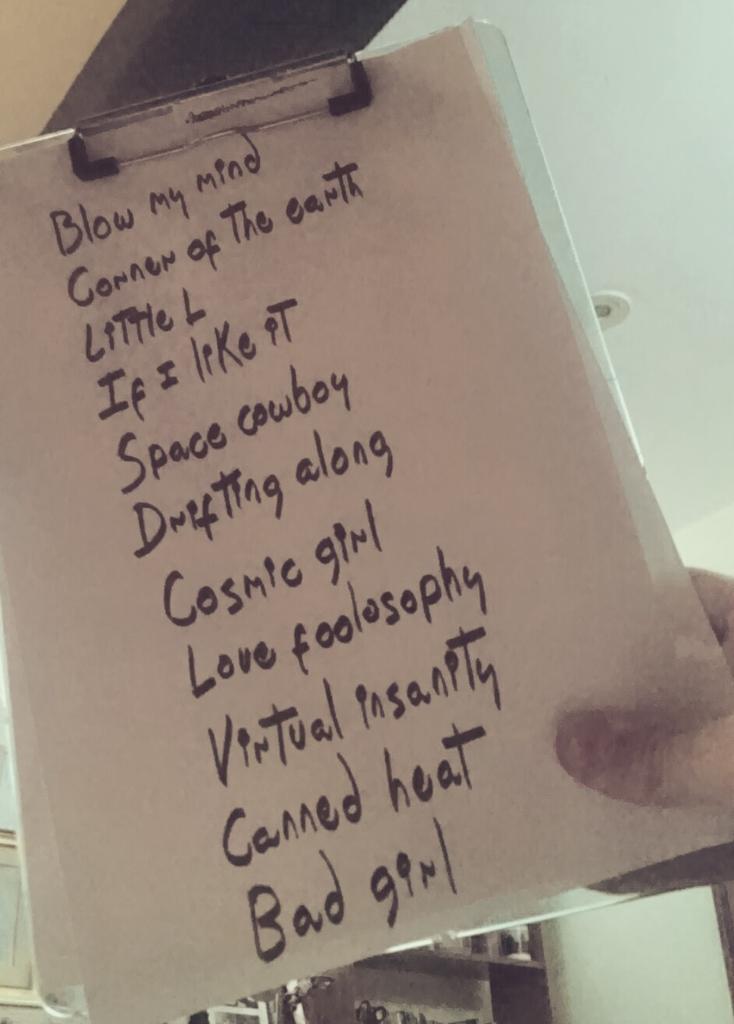 Blow my mind
Corner of The earth
Little L
If I like it
Space cowboy
Drifting along
Cosmic girl
Love foolosophy
Virtual insanity
Canned heat
Bad girl